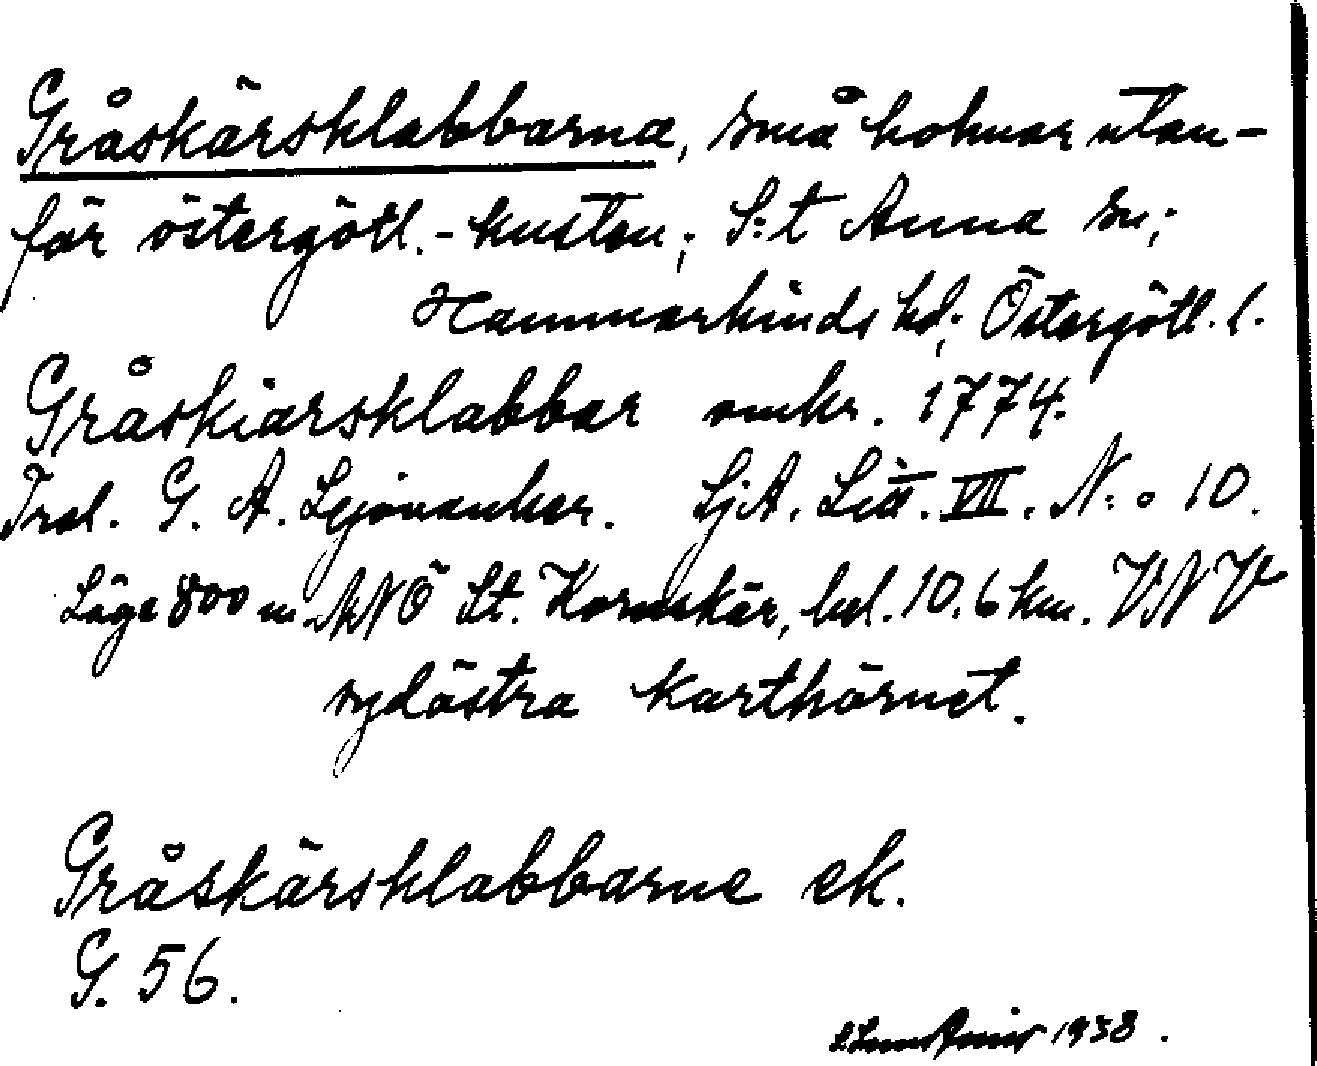 Gråskärsklabbarna, små holmar utan-
för östergötl.-kusten; S:t Anna sn;
Hammarkinds hd; Östergötl. l.
Gråskiärsklabbar omkr. 1774.
Trol. G. A. Lejonanker. LjA. Litt. VII. N:o 10.
Läge 800 m. NNÖ St. Kornskär, bel. 10.6 km. VNV
sydöstra karthörnet.
Gråskärsklabbarne ek.
G. 56.
1938.